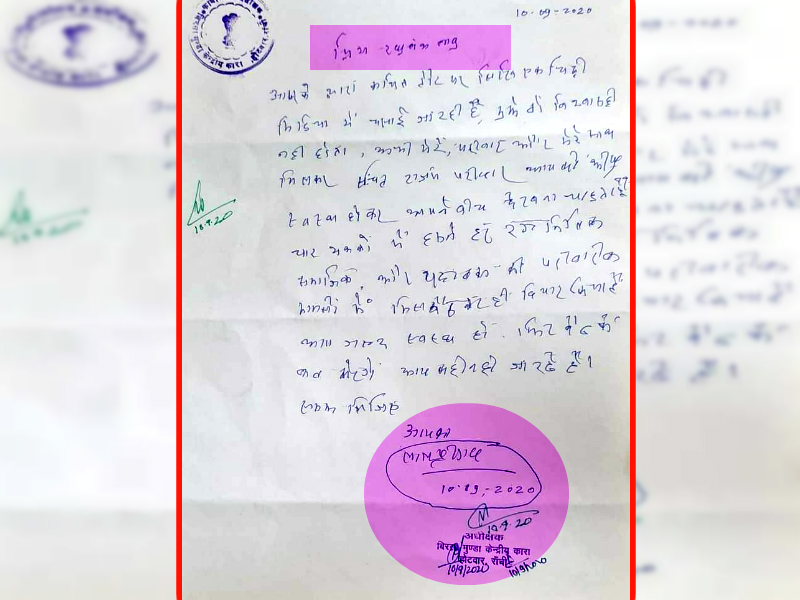 10-09-2020
प्रिय रघुवंश बाबू
आपके द्वारा कथित तौर पर लिखी एक चिट्ठी
मिडिया में चलाई जा रही है, मुझे तो विश्वास ही
नहीं होता, अभी मेरे, परिवार और मेरे साथ
मिलकर सिंचित राजद परिवार आपको शीघ्र
स्वस्थ होकर अपने बीच देखना चाहता है
चार दशकों में हमने हर राजनीतिक
समाजिक, और यहां तक की परिवारीक
मामलों में मिल बैठकर ही विचार किया है
आप जल्द स्वस्थ हों. फिर बैठ के
बात करेंगे आप कहीं नहीं जा रहे हैं।
समझ लिजिए
10.9.20
आपका
लालू प्रसाद
10.09.-2020
10.9.20
अधीक्षक
बिरसा मुण्डा केन्द्रीय कारा
होटवार, राँची
10/9/2020
10/9/2020